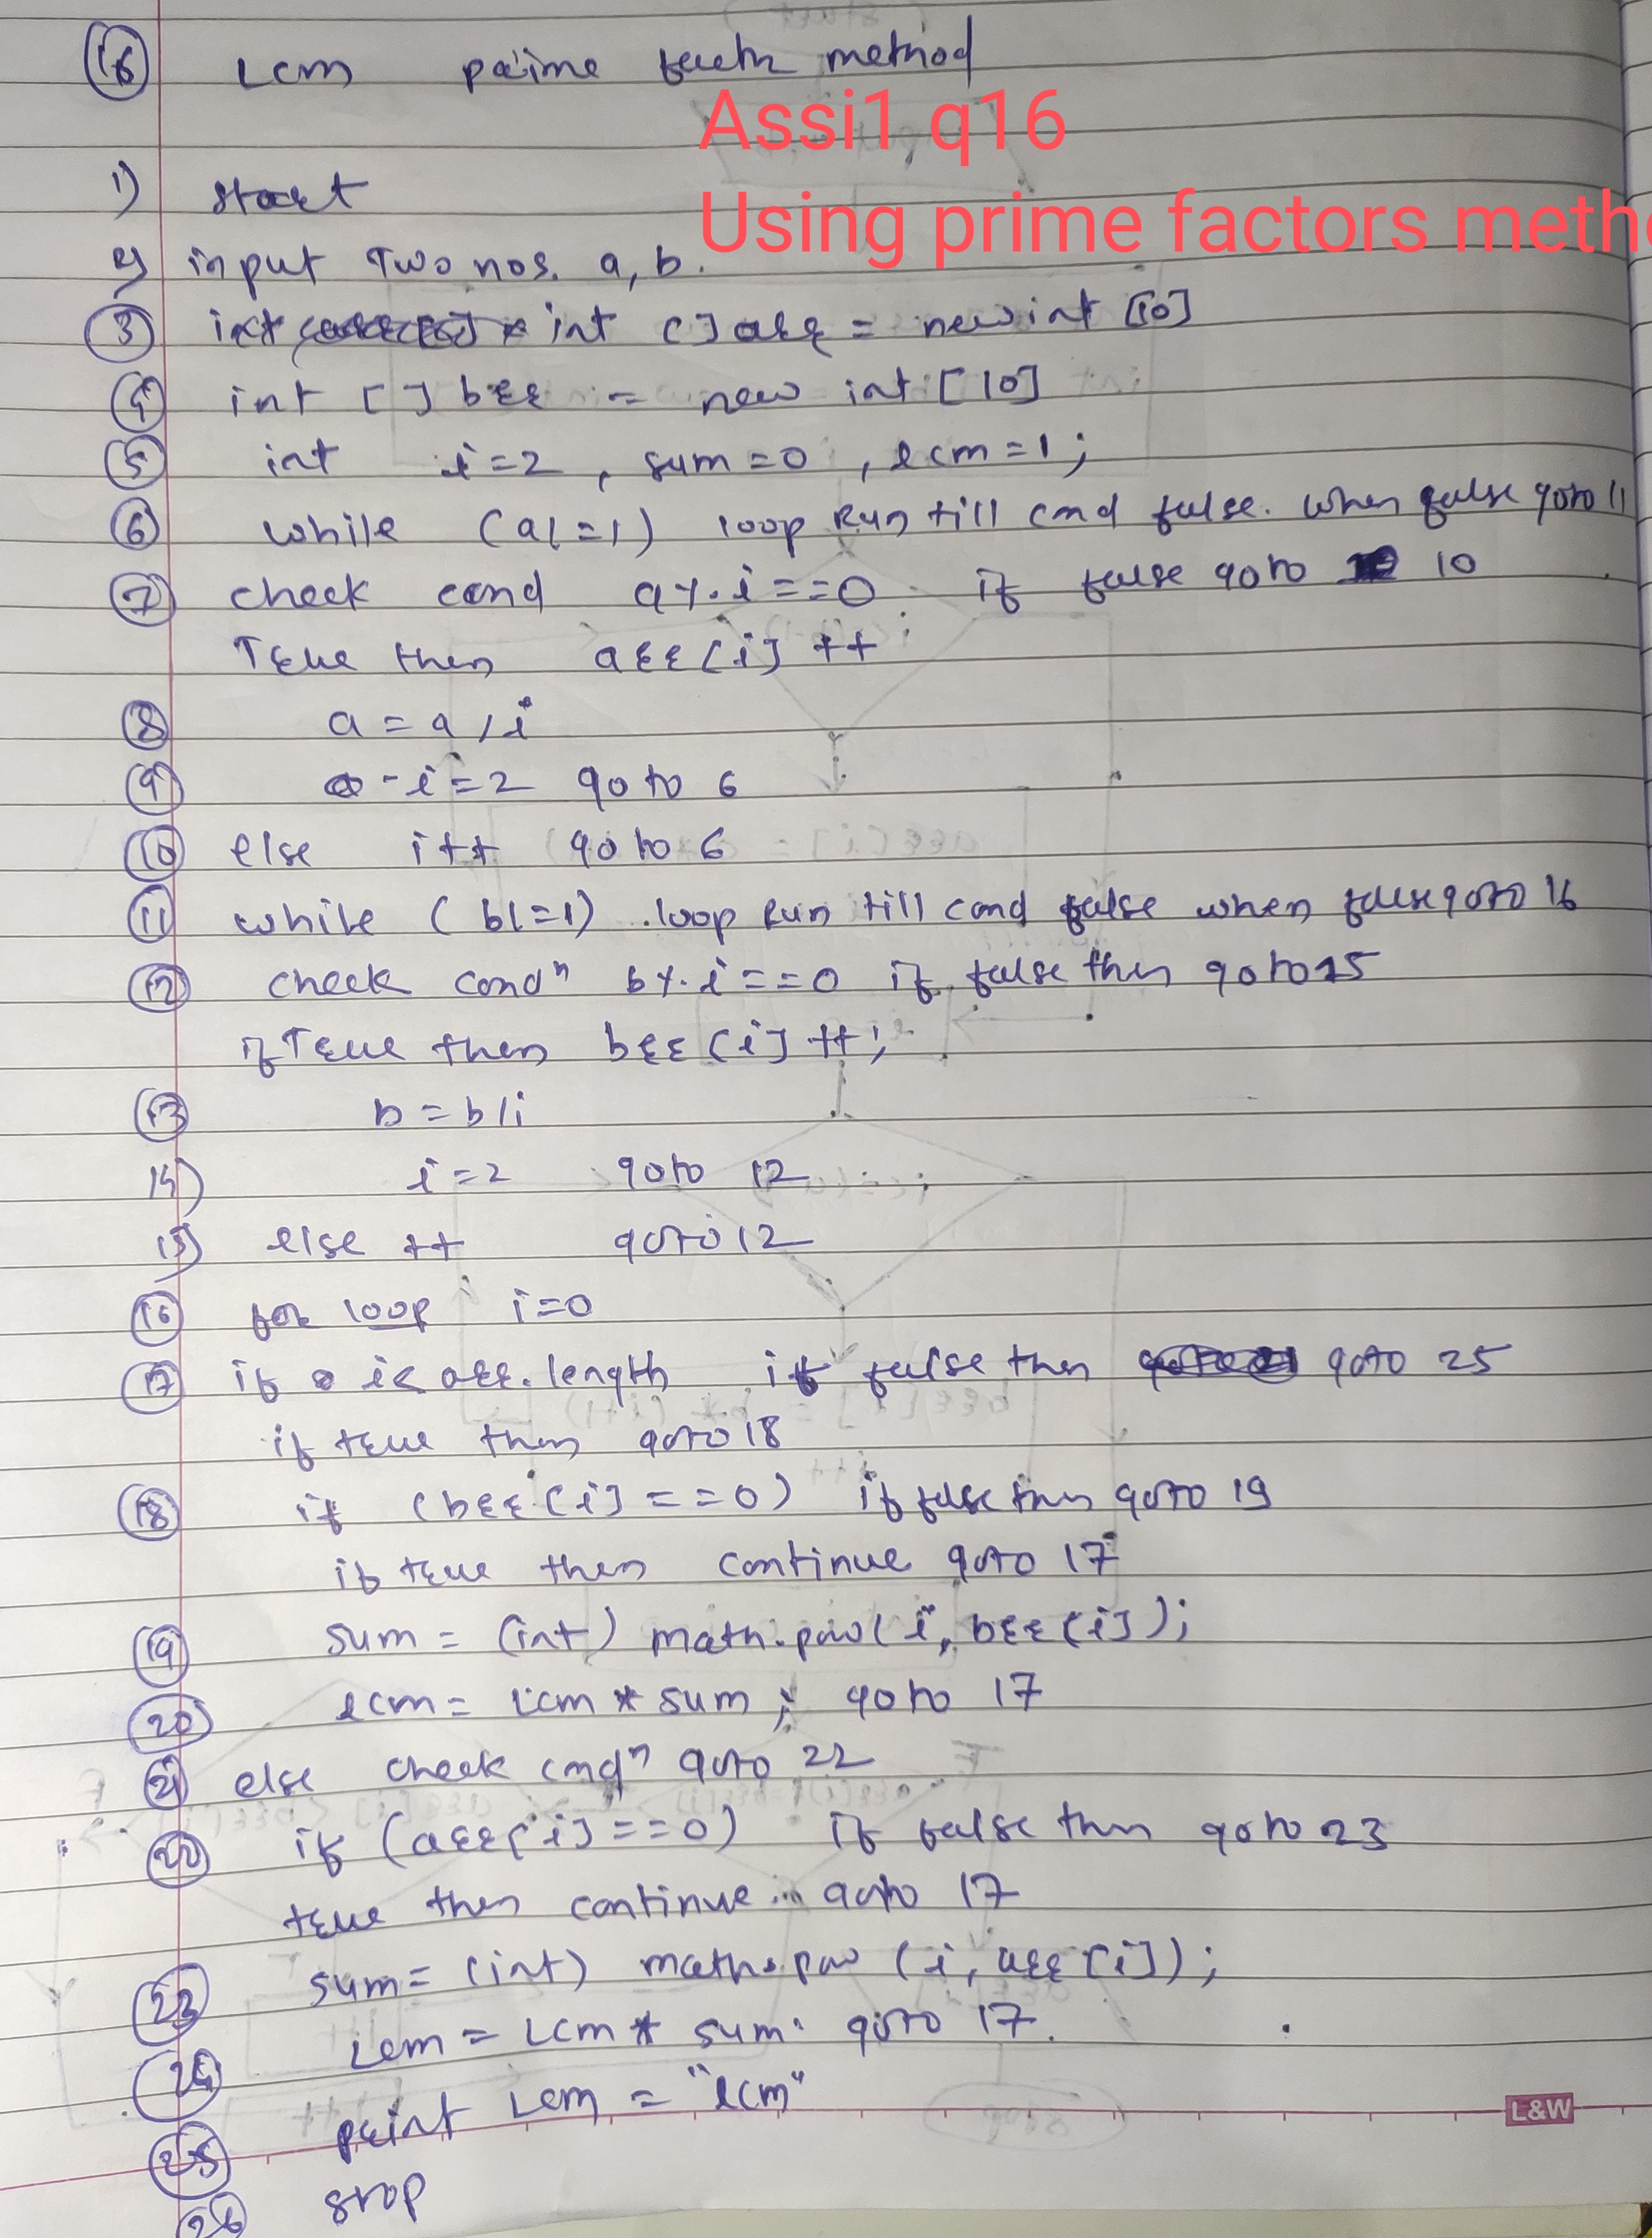 16 Lcm prime facth method
Assi1 q16
1) start
Using prime factors meth
2) input Two nos. a, b.
3 int int []arr = new int [10]
4 int [] brr = new int [10]
5 int i=2 , sum=0 , lcm=1;
6 while (a!=1) loop Run till cond false. when false goto 11
7 check cond a%i==0. if false goto 10
True then arr[i] ++
8 a = a/i
9 - i=2 goto 6
10 else i++ goto 6
11 while (b!=1) loop Run till cond false when false goto 16
12 check condn b%i==0 if false then goto 15
if True then brr[i] ++;
13 b = b/i
14) i=2 goto 12
15) else ++ goto 12
16 for loop i=0
17 if i< arr.length if false then goto 25
if true then goto 18
18 if (brr[i]==0) if false then goto 19
if true then continue goto 17
19 sum = (int) math.pow(i, brr[i]);
20 lcm = Lcm * sum ; goto 17
21 else check condn goto 22
22 if (arr[i]==0) if false then goto 23
true then continue goto 17
23 sum = (int) math.pow (i, arr[i]);
24 Lcm = Lcm * sum. goto 17.
25 print Lcm = "lcm"
L&W
26 stop